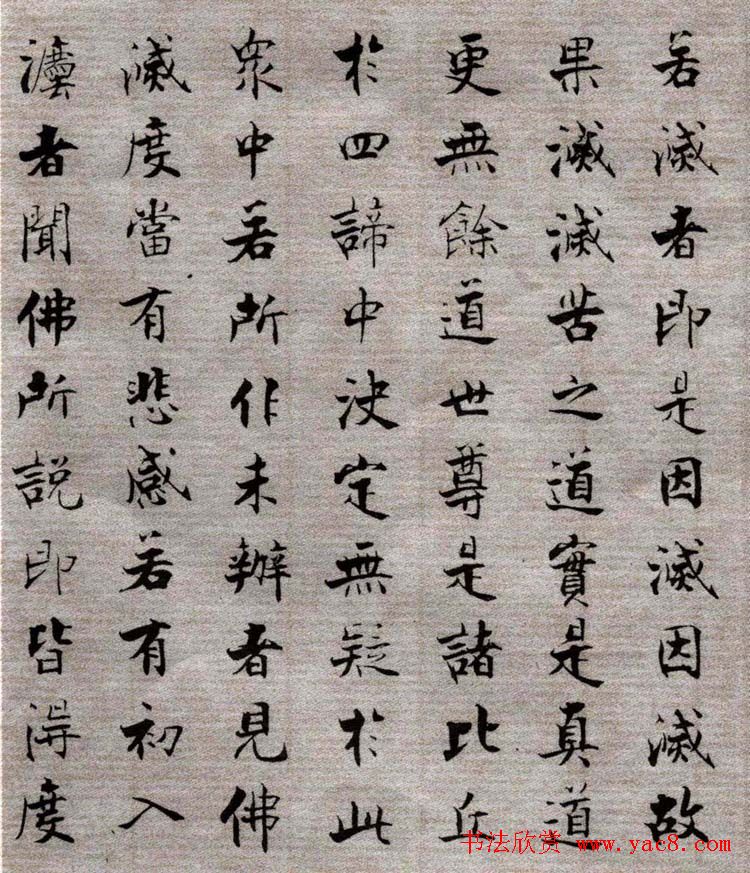 若滅者即是因滅因滅故
果滅滅苦之道實是真道
更無餘道世尊是諸比丘
於四諦中決定無疑於此
眾中若所作未辦者見佛
滅度當有悲感若有初入
灋者聞佛所說即皆得度
书法欣赏 www.yac8.com